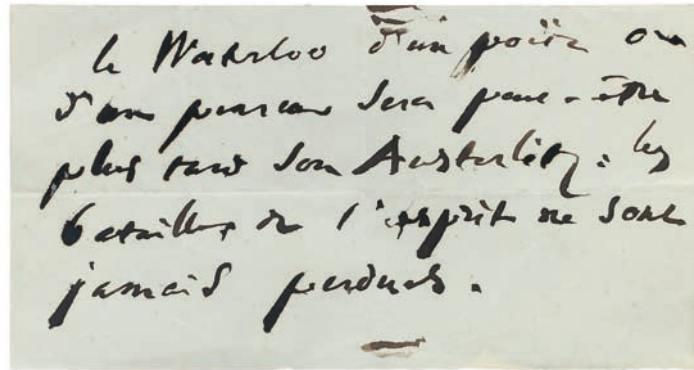 le Waterloo d'un poëte ou
d'un penseur sera peut-être
plus tard son Austerlitz. les
batailles de l'esprit ne sont
jamais perdues.